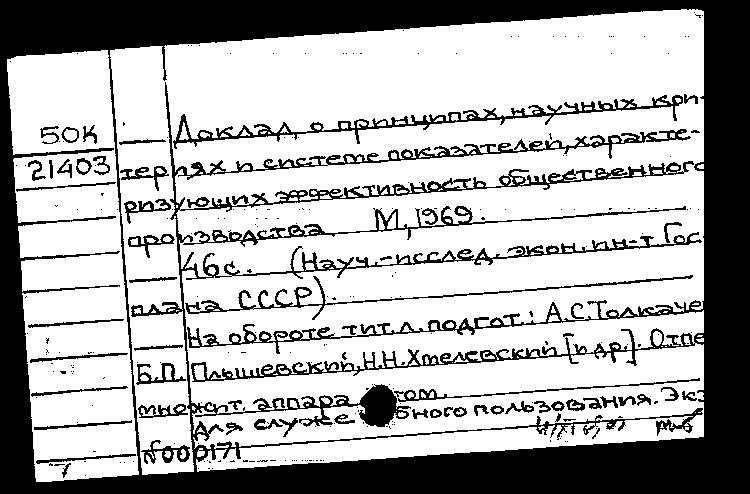 50К
21403
Доклад о принципах, научных кри-
териях и системе показателей, характе-
ризующих эффективность общественного
производства. М., 1969.
46с. (Науч.-исслед. экон. ин-т Гос-
плана СССР).
На обороте тит. л. подгот.: А.С. Толкаче
Б.П. Плышевский, Н.Н. Хмелевский [и др.]. Отпе
множит. аппара том.
Для служе бного пользования. Экз
№000171